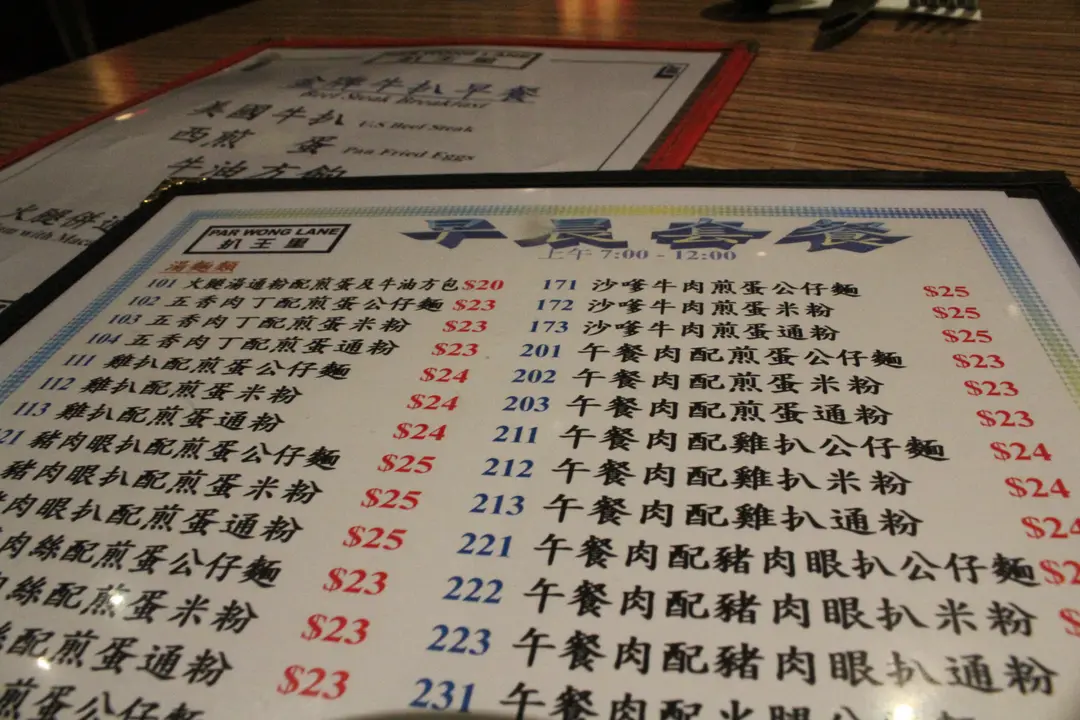 PAR WONG LANE
扒王里
金牌牛扒早餐
Beef Steak Breakfast
美國牛扒 U.S Beef Steak
西煎蛋 Pan Fried Eggs
牛油方飽
火腿併通
with Mac
PAR WONG LANE
扒王里
早晨套餐
上午 7:00 - 12:00
湯麵類
101 火腿湯通粉配煎蛋及牛油方包 $20
102 五香肉丁配煎蛋公仔麵 $23
103 五香肉丁配煎蛋米粉 $23
104 五香肉丁配煎蛋通粉 $23
111 雞扒配煎蛋公仔麵 $24
112 雞扒配煎蛋米粉 $24
113 雞扒配煎蛋通粉 $24
21 豬肉眼扒配煎蛋公仔麵 $25
豬肉眼扒配煎蛋米粉 $25
肉眼扒配煎蛋通粉 $25
肉絲配煎蛋公仔麵 $23
絲配煎蛋米粉 $23
配煎蛋通粉 $23
煎蛋公仔
171 沙嗲牛肉煎蛋公仔麵 $25
172 沙嗲牛肉煎蛋米粉 $25
173 沙嗲牛肉煎蛋通粉 $25
201 午餐肉配煎蛋公仔麵 $23
202 午餐肉配煎蛋米粉 $23
203 午餐肉配煎蛋通粉 $23
211 午餐肉配雞扒公仔麵 $24
212 午餐肉配雞扒米粉 $24
213 午餐肉配雞扒通粉 $24
221 午餐肉配豬肉眼扒公仔麵 $2
222 午餐肉配豬肉眼扒米粉 $
223 午餐肉配豬肉眼扒通粉
231 午餐肉配火腿公仔